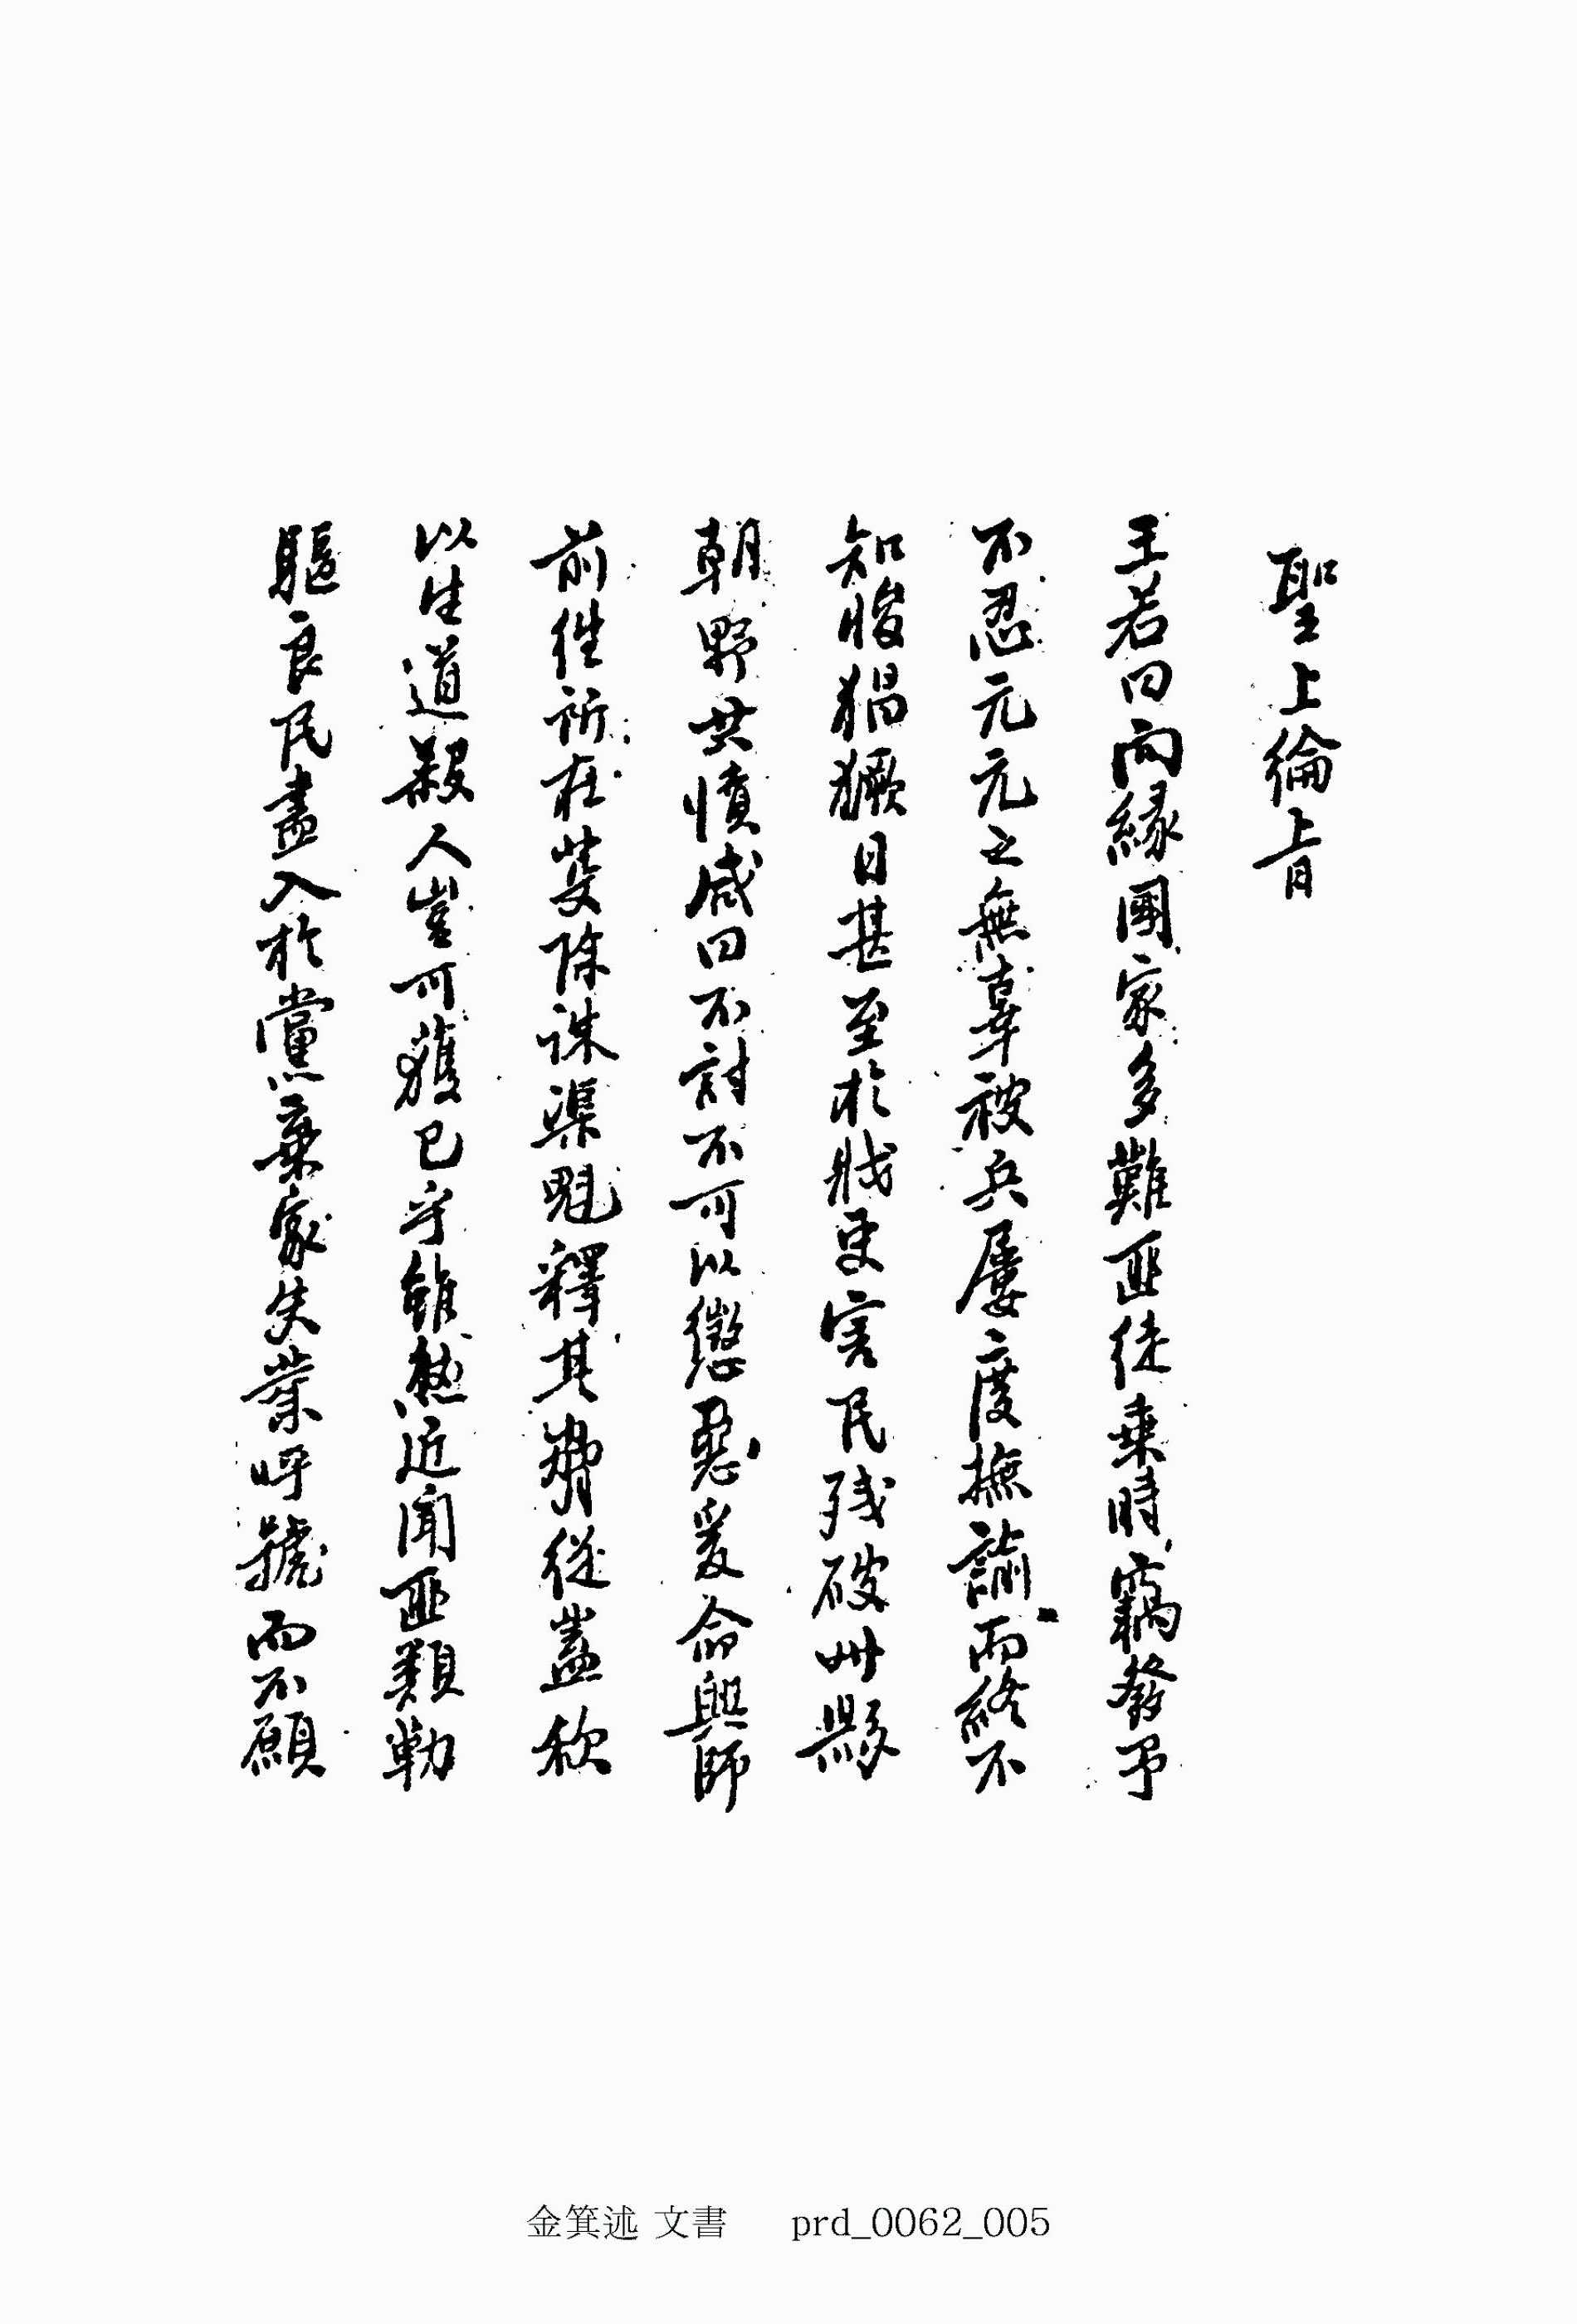 聖上綸音
王若曰向緣國家多難匪徒乘時竊發予
不忍元元之無辜被兵屢度撫諭而終不
知悛猖獗日甚至於戕吏害民殘破州縣
朝野共憤咸曰不討不可以懲惡爰命興師
前徃所在芟除誅渠魁釋其脅從盖欲
以生道殺人豈可獲已乎雖然近聞匪類勒
驅良民盡入於黨棄家失業呼號而不願
金箕述 文書 prd_0062_005